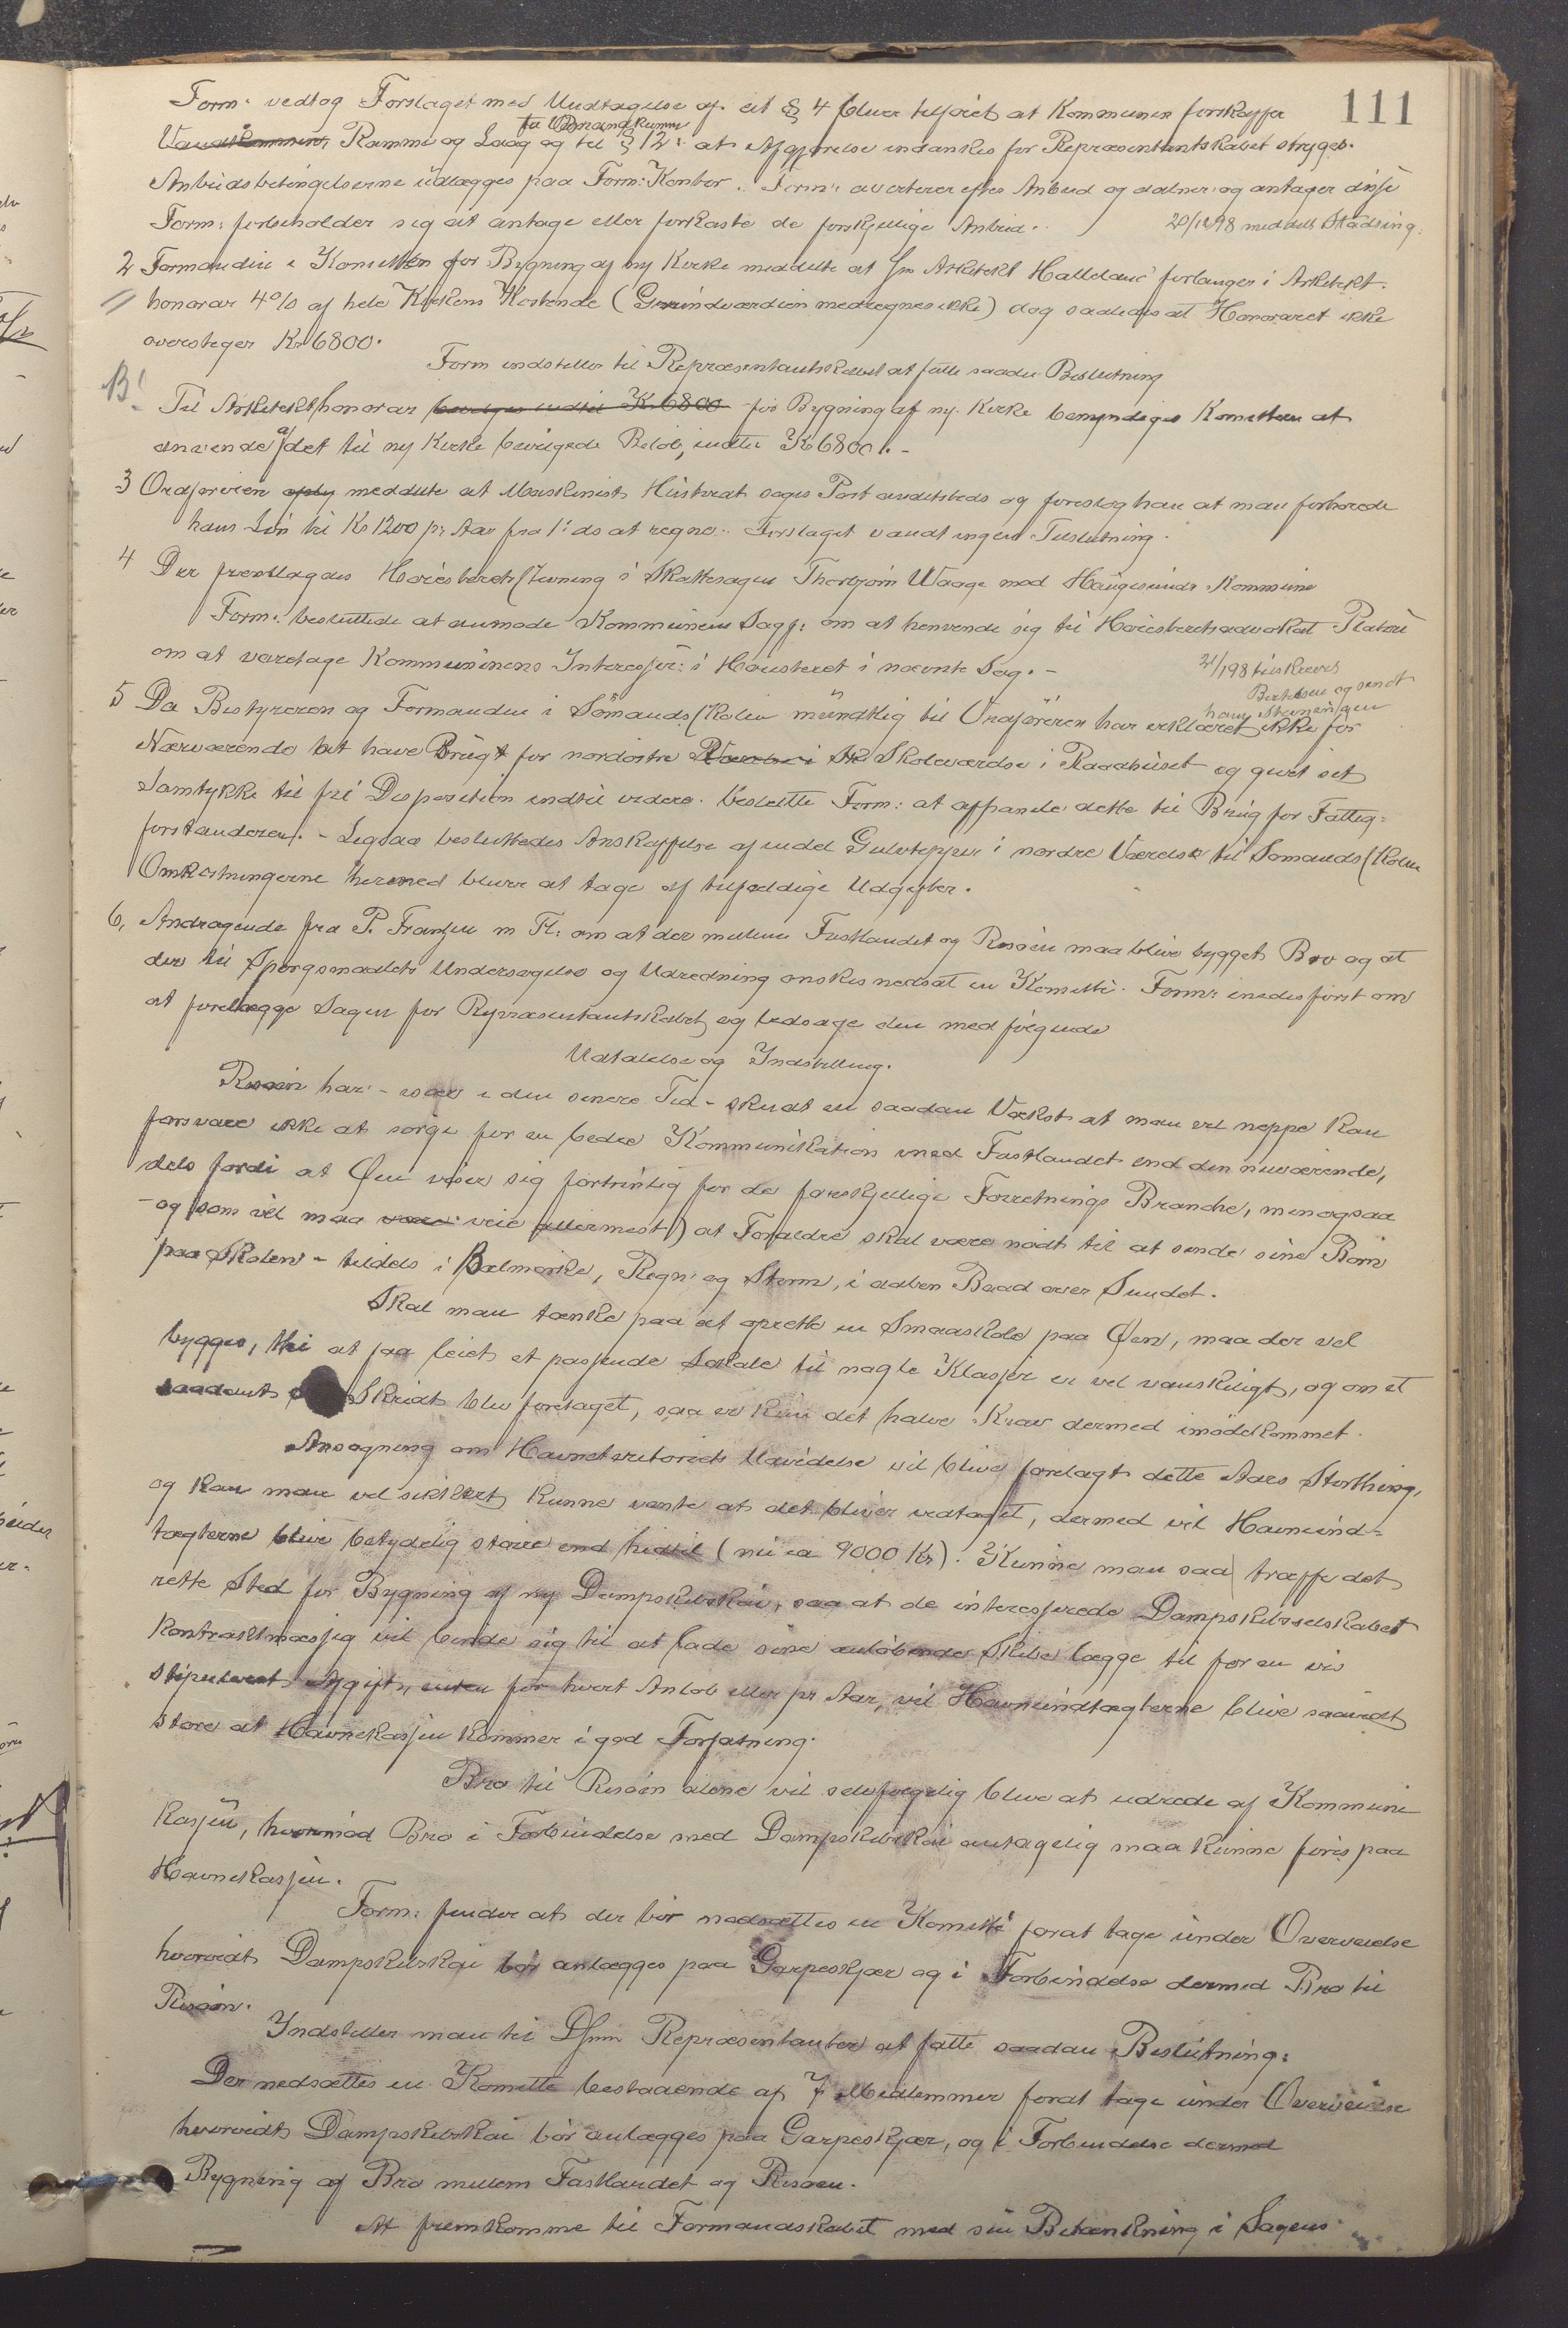 111
Form. vedtog Forslaget med Undtagelse af at § 4 bliver tilføiet at Kommunen forskaffer
til Vandkummer
Vandkummen, Ramme og Laag og til § 12: at Afgjørelse indankes for Repræsentantskabet stryges.
Anbudsbetingelserne udlægges paa Form: Kontor. Form: averterer efter Anbud og aabner og antager disse
Form: forbeholder sig at antage eller forkaste de forskjellige Anbud.
20/1 98 meddelt Stadsing:
2 Formanden i Komiteen for Bygning af ny Kirke meddelte at Hr Arkitekt Halleland forlanger i Arkitekt-
honorar 4% af hele Kirkens Kostende (Grundværdien medregnes ikke) dog saaledes at Honoraret ikke
overstiger Kr 6800.
Form indstiller til Repræsentantskabet at fatte saadan Beslutning
B!
Til Arkitekthonorar bevilges indtil Kr 6800 for Bygning af ny Kirke bemyndiges Komiteen at
anvende af det til ny Kirke bevilgede Beløb, indtil Kr 6800.-
3 Ordføreren oply meddelte at Maskinist Hustvedt søges Post andetsteds og foreslog han at man forhøiede
hans Løn til Kr 1200 pr Aar fra 1ste ds at regne. Forslaget vandt ingen Tilslutning.
4 Der fremlagdes Høiesteretsstevning i Skattesagen Thorbjørn Waage mod Haugesunds Kommune
Form: besluttede at anmode Kommunens Sagf: om at henvende sig til Høiesteretsadvokat Platou
om at varetage Kommunens Interesser i Høiesteret i nævnte Sag.-
21/1 98 tilskrevet
og sendt
ham Stevningen
5 Da Bestyreren og Formanden i Sømandsskolen mundtlig til Ordføreren har erklæret ikke for
Nærværende at have Brug for nordøstre Værelse i Sk Skoleværelse i Raadhuset og givet sit
Samtykke til fri Disposition indtil videre. Beslutte Form: at afpanele dette til Brug for Fattig-
forstanderen. - Ligesaa besluttedes Anskaffelse af endel Gulvtepper i nordre Værelse til Sømandsskolen
Omkostningerne hermed bliver at tage af tilfældige Udgifter.
6, Andragende fra P. Frantzen m Fl: om at der mellem Fastlandet og Risøen maa blive bygget Bro og at
der til Spørgsmaalets Undersøgelse og Udredning ønskes nedsat en Komitte. Form: enedes først om
at forelægge Sagen for Repræsentantskabet og ledsage den med følgende
Udtalelse og Indstilling.
Risøen har - især i den senere Tid - skudt en saadan Vækst at man vel neppe kan
forsvare ikke at sørge for en bedre Kommunikation med Fastlandet end den nuværende,
dels fordi at Øen viser sig fortrinlig for de forskjellige Forretnings Branche, men ogsaa
- og som vel maa være veie allermest) at Forældre skal være nødt til at sende sine Børn
paa Skolen - tildels i Bælmørke, Regn og Storm, i aaben Baad over Sundet.
Skal man tænke paa at oprette en Smaaskole paa Øen, maa der vel
bygges, thi at faa leiet et passende Lokale til nogle Klasser er vel vanskeligt, og om et
saadant Skridt blev foretaget, saa er kun det halve Krav dermed imødekommet.
Ansøgning om Havneteritoriets Udvidelse vil blive forelagt dette Aars Storthing,
og kan man vel sikkert kunne vente at det bliver vedtaget, dermed vil Havneind-
tægterne blive betydelig større end hidtil (nu ca 9000 Kr). Kunne man saa træffe det
rette Sted for Bygning af ny Dampskibskai, saa at de interesserede Dampskibsselskaber
kontraktmæssig vil binde sig til at lade sine anløbende Skibe lægge til for en vis
stipuleret Afgift, enten for hvert Anløb eller pr Aar, vil Havneindtægterne blive saavidt
store at Havnekassen kommer i god Forfatning.
Bro til Risøen alene vil selvfølgelig blive at udrede af Kommune
kassen, hvorimod Bro i Forbindelse med Dampskibskai antagelig maa kunne føres paa
Havnekassen.
Form: finder at der bør nedsættes en Komitte forat tage under Overveielse
hvorvidt Dampskibskai bør anlægges paa Garpeskjær og i Forbindelse dermed Bro til
Risøen.
Indstiller man til DHrr Repræsentanter at fatte saadan Beslutning:
Der nedsættes en Komitte bestaaende af 7 Medlemmer forat tage under Overveielse
hvorvidt Dampskibskai bør anlægges paa Garpeskjær, og i Forbindelse dermed
Bygning af Bro mellem Fastlandet og Risøen.
At fremkomme til Formandskabet med sin Betænkning i Sagens